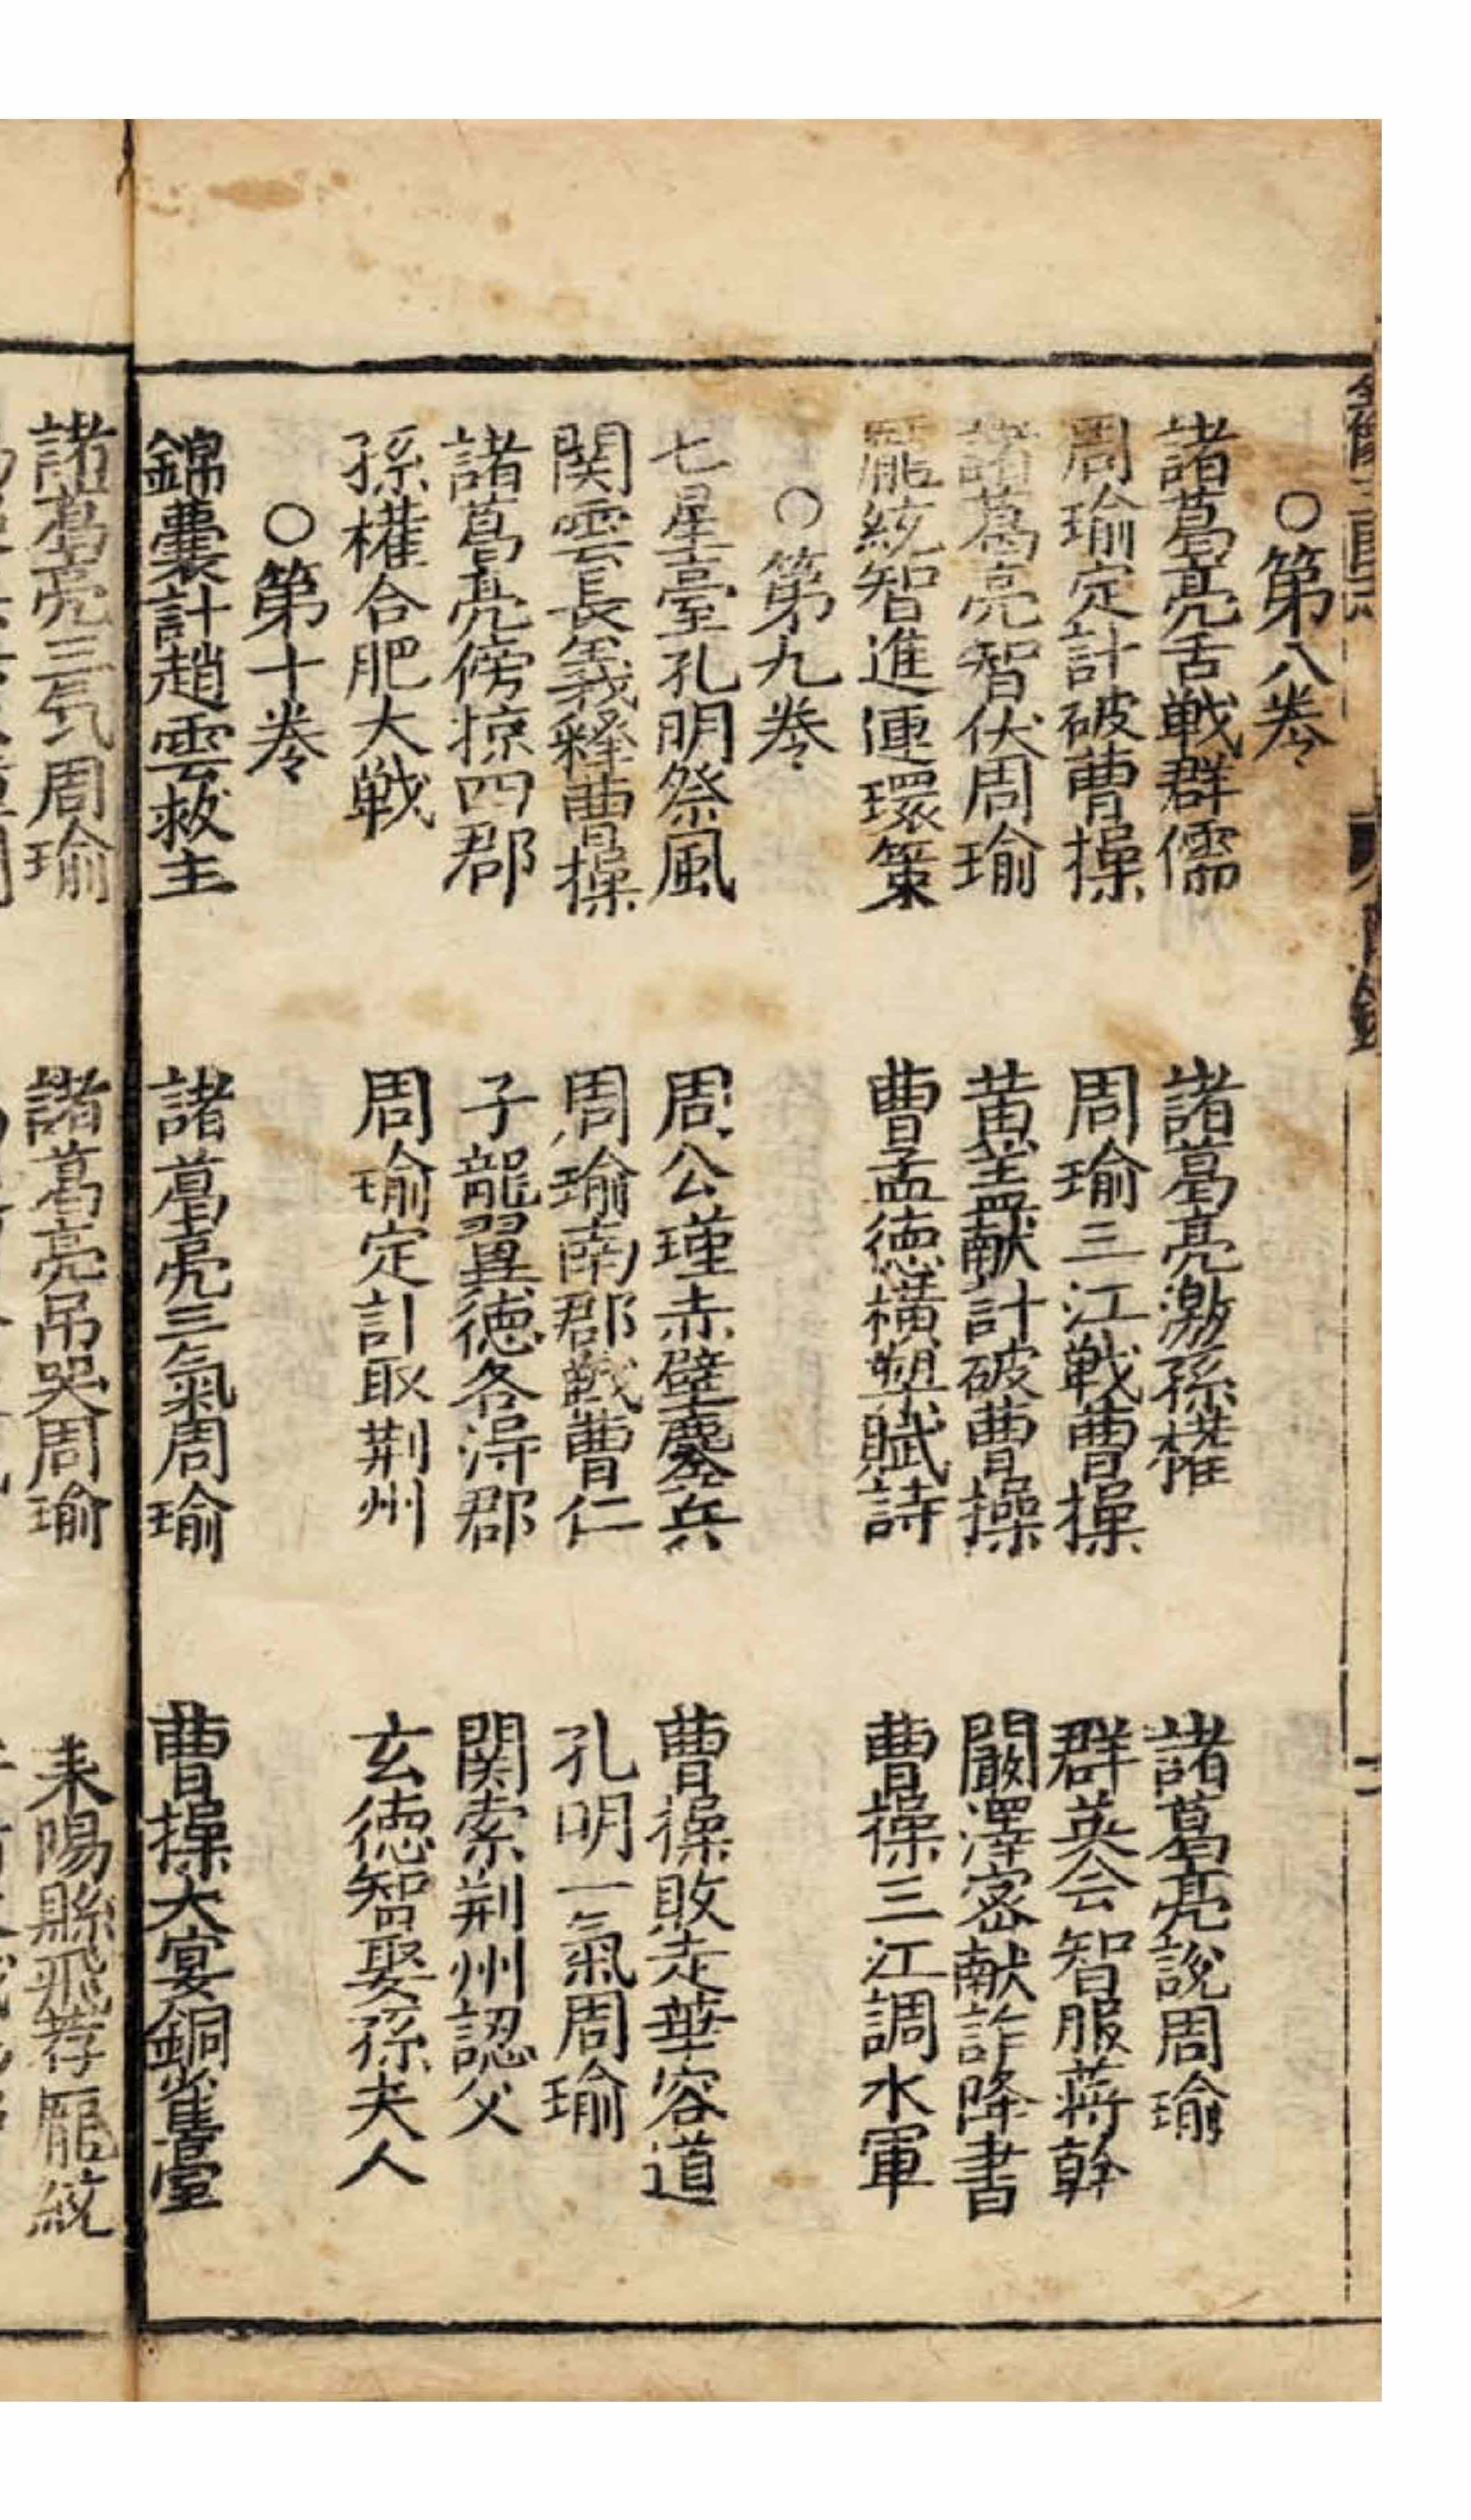 ○第八巻
諸葛亮舌戦群儒 諸葛亮激孫権 諸葛亮説周瑜
周瑜定計破曹操 周瑜三江戦曹操 群英会智服蒋幹
諸葛亮智伏周瑜 黄盖献計破曹操 闞澤密献詐降書
龐統智進連環策 曹孟徳横槊賦詩 曹操三江調水軍
○第九巻
七星臺孔明祭風 周公瑾赤壁鏖兵 曹操敗走華容道
関雲長義释曹操 周瑜南郡戦曹仁 孔明一氣周瑜
諸葛亮傍掠四郡 子龍翼徳各得郡 関索荆州認父
孫権合肥大戦 周瑜定計取荆州 玄徳智娶孫夫人
○第十巻
錦囊計趙雲救主 諸葛亮三氣周瑜 曹操大宴銅雀臺
諸葛亮三気周瑜 諸葛亮吊哭周瑜 耒陽縣飛荐龐統